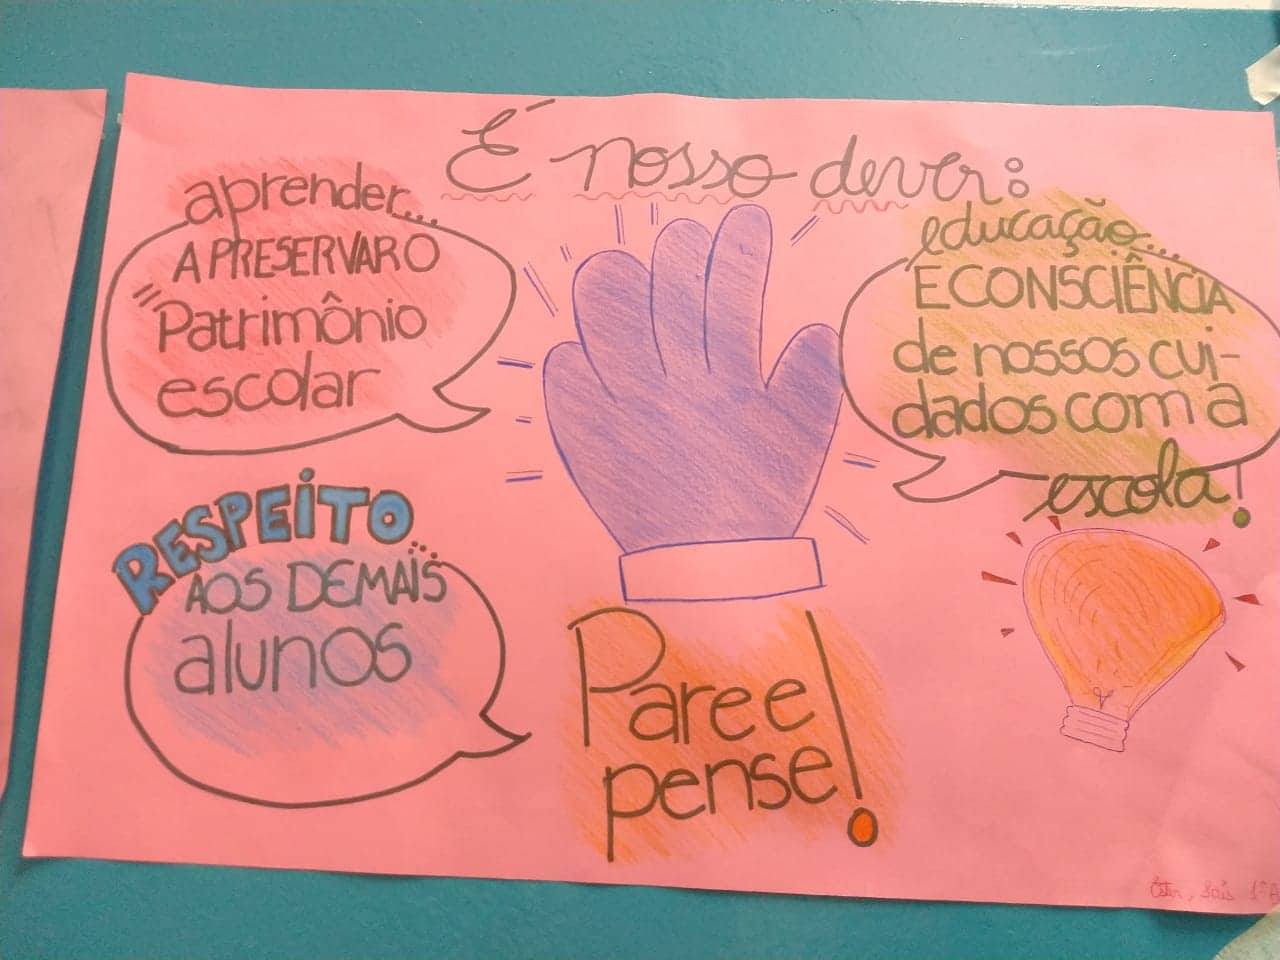 É nosso dever:
aprender...
A PRESERVAR O
Patrimônio
escolar
educação...
E CONSCIÊNCIA
de nossos cui-
dados com a
escola!
RESPEITO...
AOS DEMAIS
alunos
Pare e
pense!
1ºA